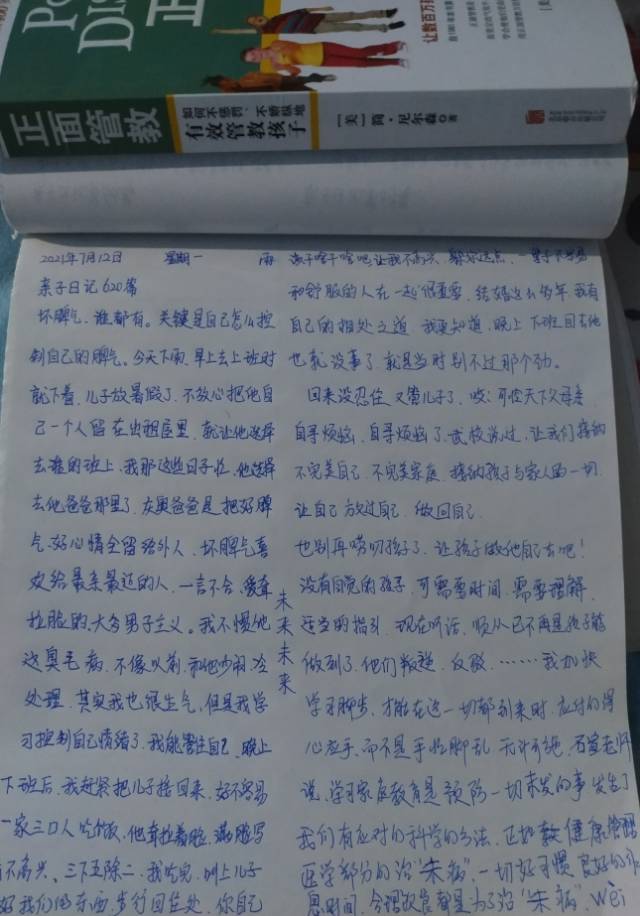 正
让数百万孩
正面管教
如何不惩罚、不娇纵地
有效管教孩子
[美]简·尼尔森◎著
2021年7月12日 星期一 雨
亲子日记620篇
坏脾气,谁都有。关键是自己怎么控
制自己的脾气。今天下雨,早上去上班时
就下着,儿子放暑假了,不放心把他自
己一个人留在出租屋里,就让他选择
去谁的班上,我那这些日子忙,他选择
去他爸爸那里了,灰奥爸爸是把好脾
气,好心情全留给外人,坏脾气喜
欢给最亲最近的人,一言不合,爱耷
拉脸的,大男子主义。我不惯他
这臭毛病,不像以前,和他吵闹,冷
处理,其实我也很生气,但是我学
习控制自己情绪了,我能管住自己,晚上
下班后,我赶紧把儿子接回来,好不容易
一家三口人吃饭,他耷拉着脸,满脸写
不高兴,三下五除二,我吃完,叫上儿子
好我们的东西,步行回住处,你自己
未来未来
让我不高兴,离你远点,
和舒服的人在一起很重要,结婚这么多年,我有
自己的相处之道,我更知道,晚上下班回去他
也就没事了,就是当时别不过那个劲。
回来没忍住,又管儿子了,唉:可怜天下父母亲
自寻烦恼,自寻烦恼了,武校说过,让我们接纳
不完美自己,不完美家庭,接纳孩子与家人的一切
让自己放过自己,做回自己
也别再唠叨孩子了,让孩子做他自己去吧!
没有自觉的孩子,可需要时间,需要理解,
适当的指引,现在听话,顺从已不再是孩子能
做到了,他们叛逆,反驳,……我加快
学习脚步,才能在这一切都到来时,应对的得
心应手,而不是手忙脚乱,无计可施,石宣老师
说,学习家庭教育是预防一切未发的事,发生了
我们有应对的科学的方法,正如健康管理
医学部分的治“未病”,一切好习惯,良好的作
息时间,合理饮食都是为了治“未病”,wèi